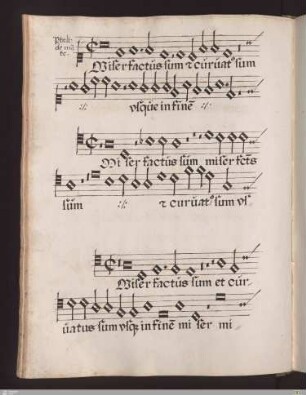 Miser factus sum et curuat⁹ sum
vsque in finē
Miser factus sum, miser fcts
sum et curuat⁹ sum vs
Miser factus sum et cur
uatus sum vsq̄ in finē mi ser mi